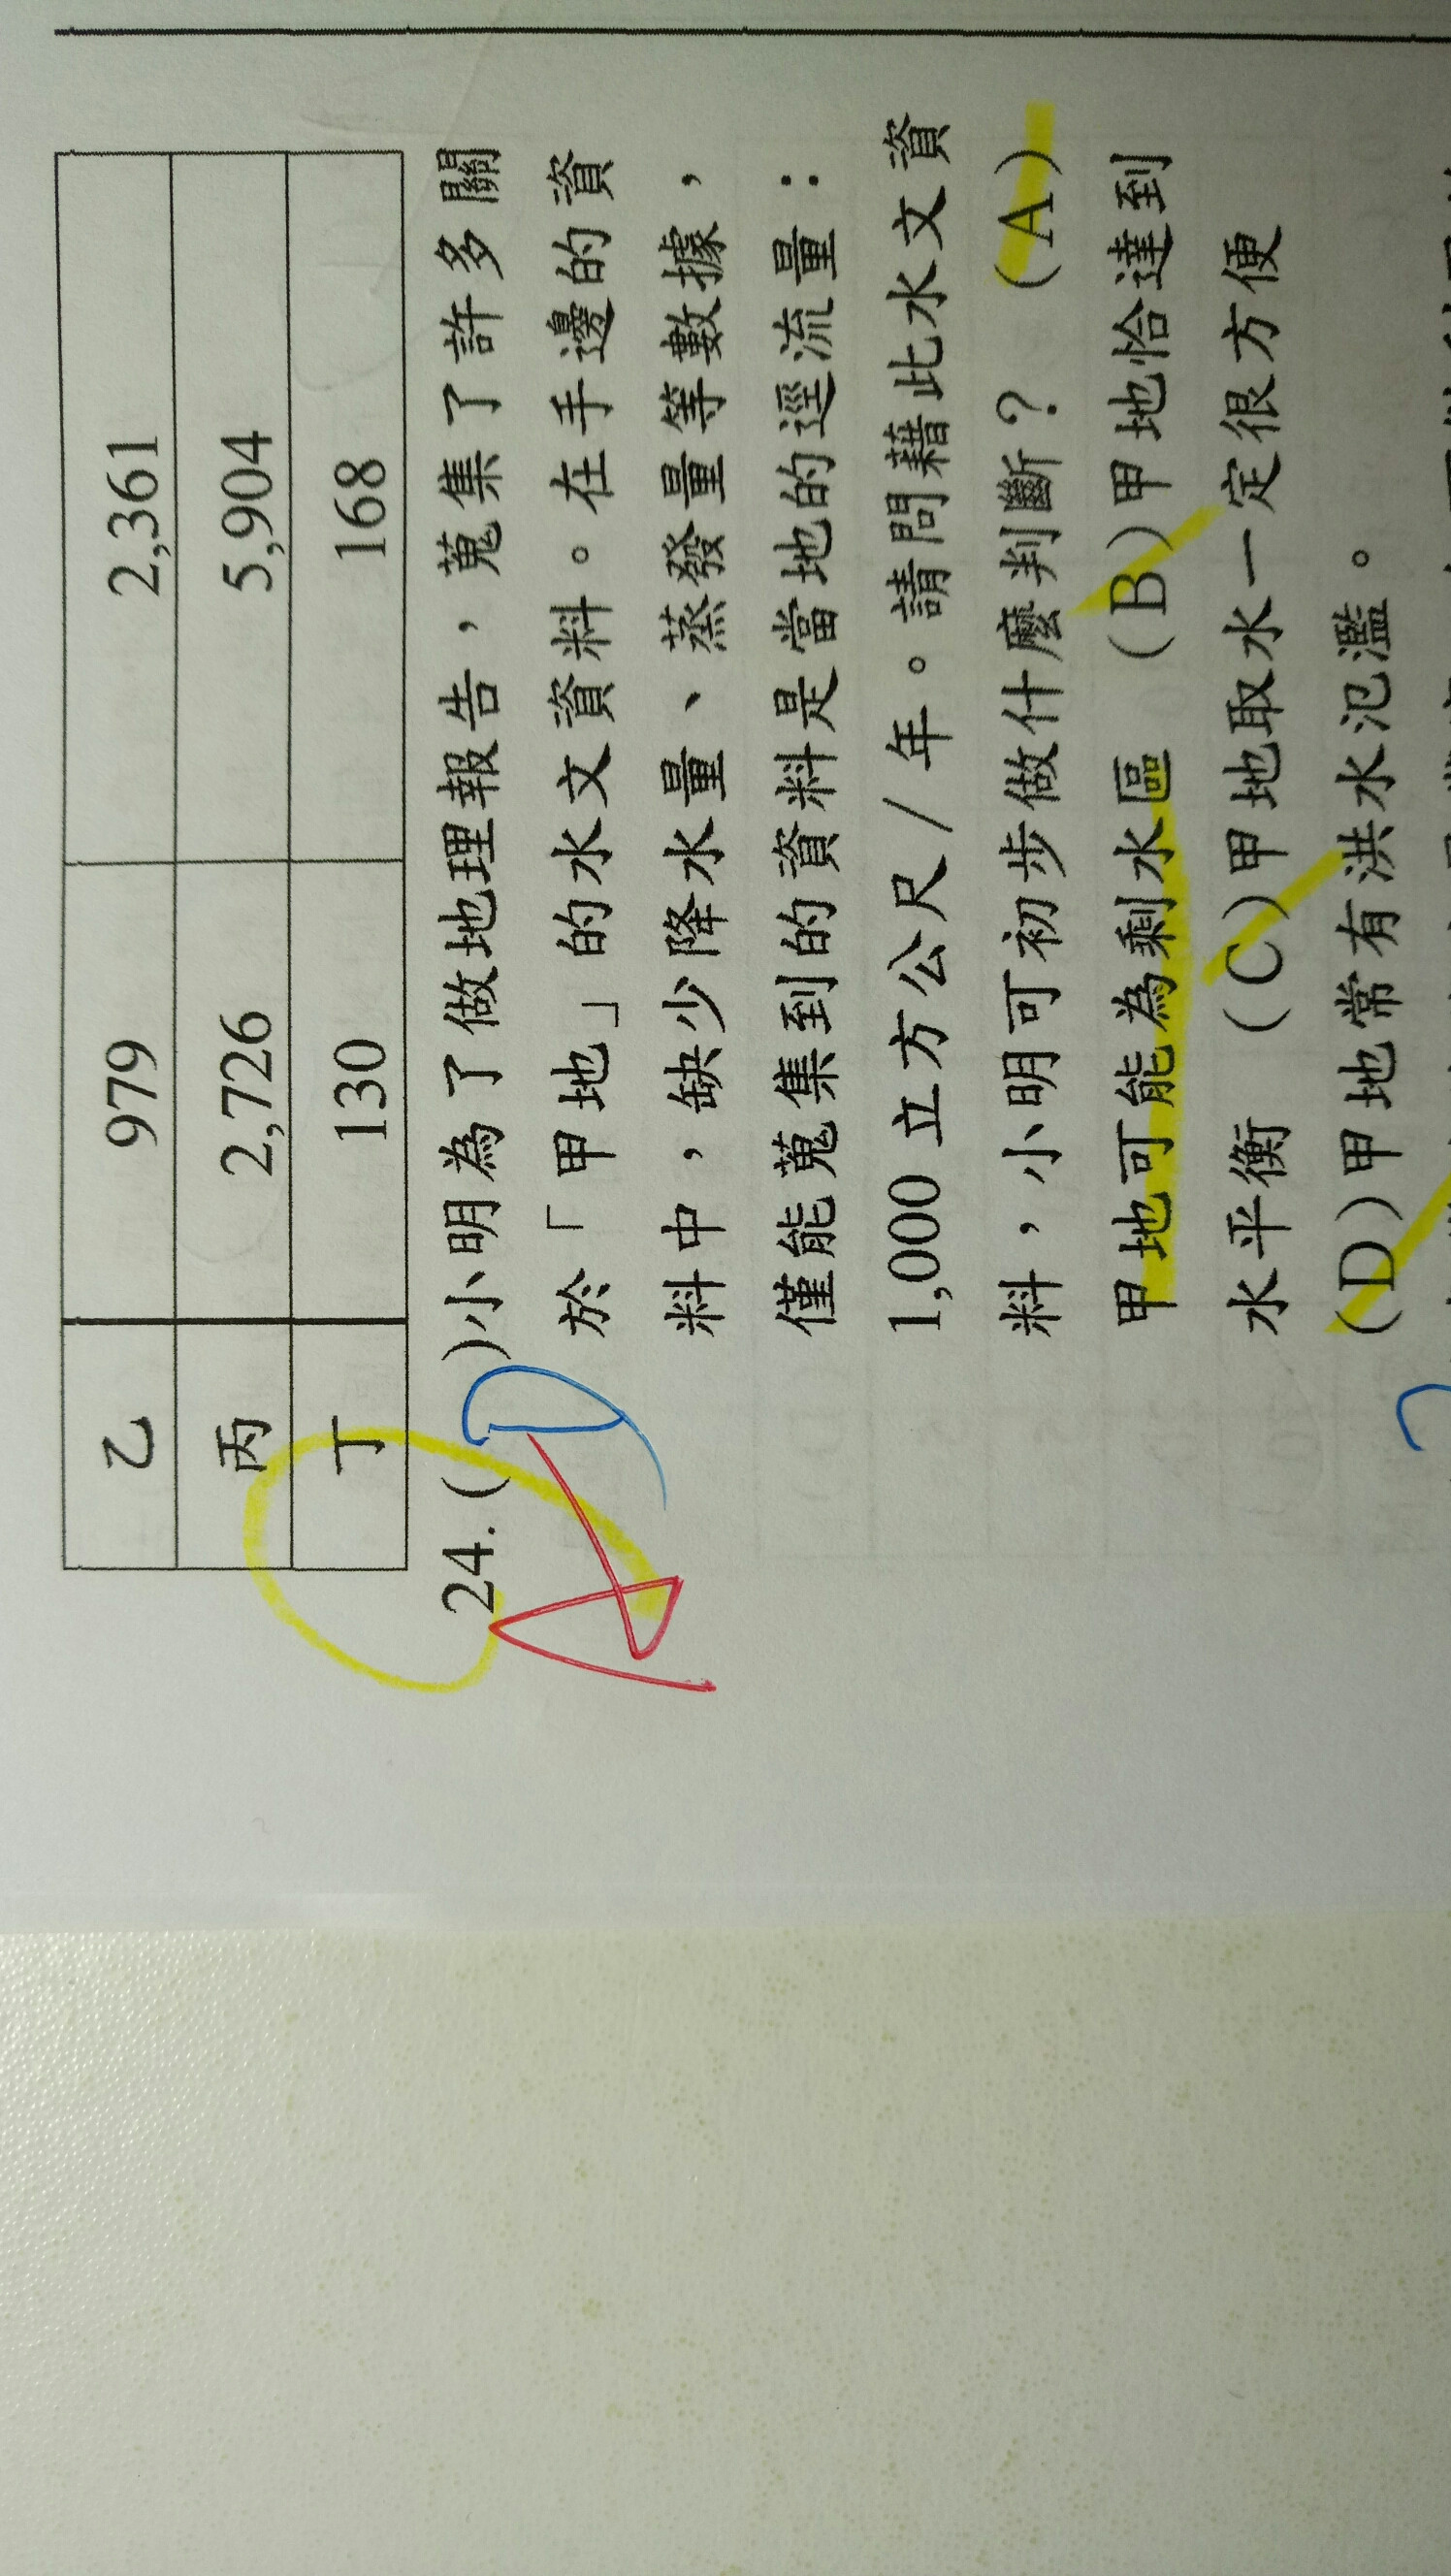 乙 979 2,361
丙 2,726 5,904
丁 130 168
24.( D )小明為了做地理報告，蒐集了許多關
A
於「甲地」的水文資料。在手邊的資
料中，缺少降水量、蒸發量等數據，
僅能蒐集到的資料是當地的逕流量：
1,000 立方公尺/年。請問藉此水文資
料，小明可初步做什麼判斷？ (A)
甲地可能為剩水區 (B)甲地恰達到
水平衡 (C)甲地取水一定很方便
(D)甲地常有洪水氾濫。